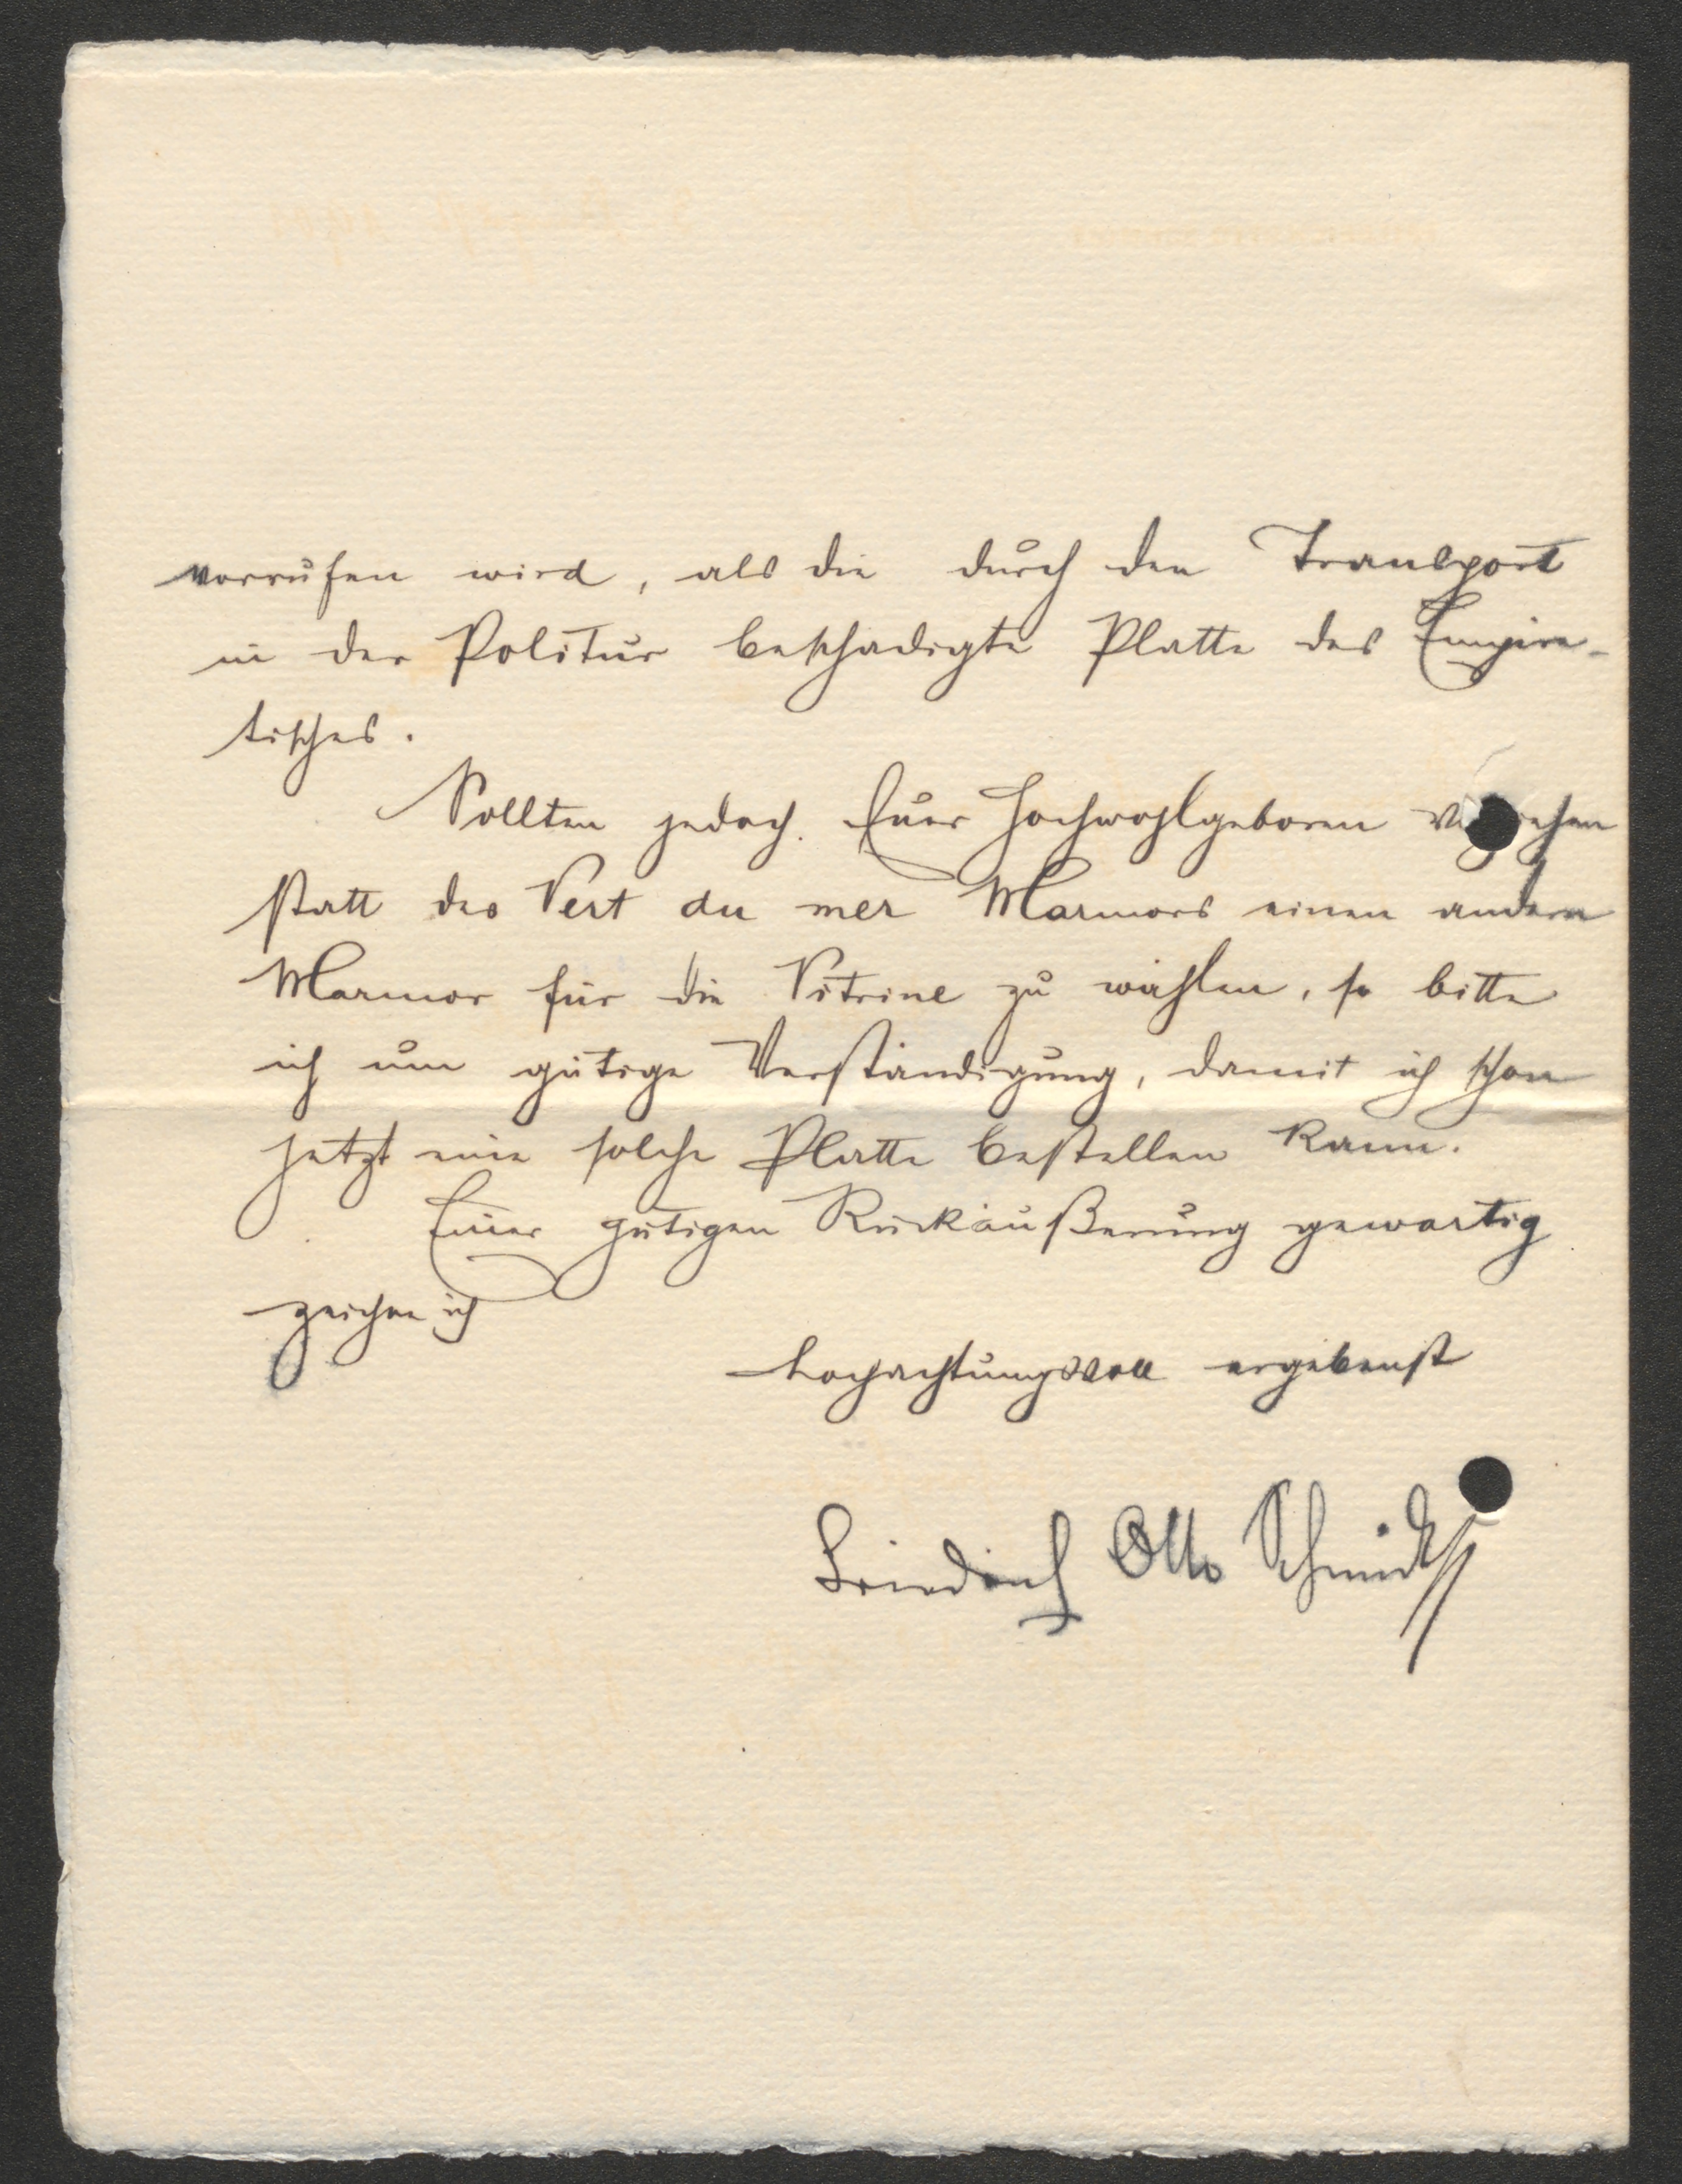 vorrufen wird, als die durch den Transport
in der Politur beschädigte Platte des Empire-
tisches.
Sollten jedoch Euer Hochwohlgeboren vorziehen
statt des Vert du mer Marmors einen andern
Marmor für die Vitrine zu wählen, so bitte
ich um gütige Verständigung, damit ich schon
jetzt eine solche Platte bestellen kann.
Einer gütigen Rückäußerung gewärtig
zeichne ich
hochachtungsvoll ergebenst
Friedrich Otto Schmidt